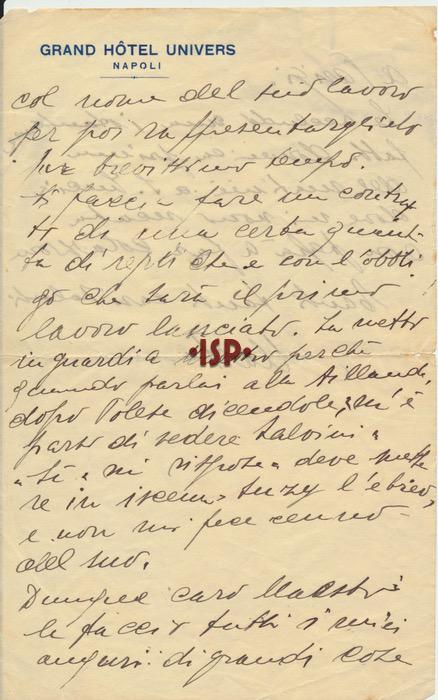 GRAND HÔTEL UNIVERS
NAPOLI
col nome del suo lavoro
per poi raffresentarglielo
in brevissimo tempo.
Si faccia fare un contrat
to di una certa quanti
ta di repliche e con l'obbli
go che sarà il primo
lavoro lanciato. La metto
in guardia perchè
·ISP·
quando parlai alla
dopo Polese dicendole, m'è
parso di vedere Salvini"
"Si" mi rispose" deve mette
re in iscena Suzy l'ebreo,
e non mi fece cenno
del suo.
Dunque caro Maestro
le faccio tutti i miei
auguri di grandi cose